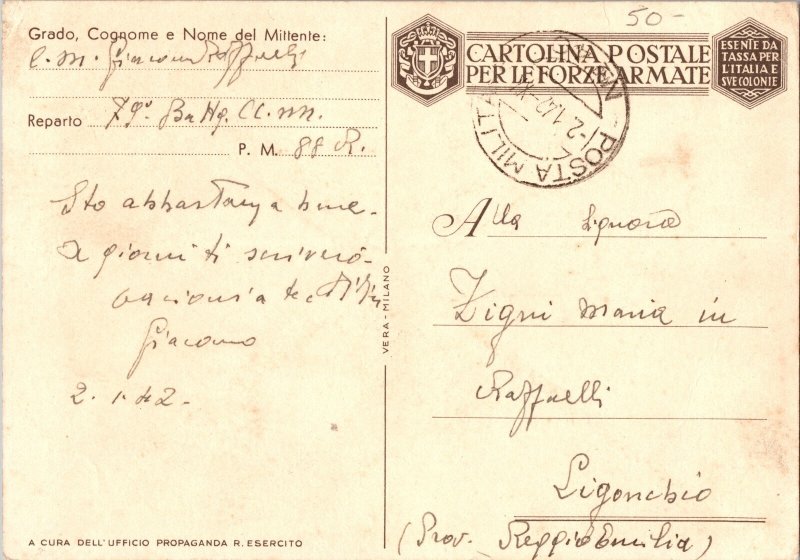 Grado, Cognome e Nome del Mittente:
C. M. Giacomo Raffaelli
Reparto 79° Btg. CC. NN.
P. M. 88 R.
Sto abbastanza bene.
a giorni ti scriverò.
bacioni a te
Giacomo
2.1.42-
A CURA DELL'UFFICIO PROPAGANDA R. ESERCITO
VERA - MILANO
50-
CARTOLINA POSTALE
PER LE FORZE ARMATE
ESENTE DA
TASSA PER
L'ITALIA E
SVE COLONIE
POSTA MILITA
-2.1.42
Alla Signora
Zigni Maria in
Raffaelli
Ligonchio
(Prov. Reggio Emilia)